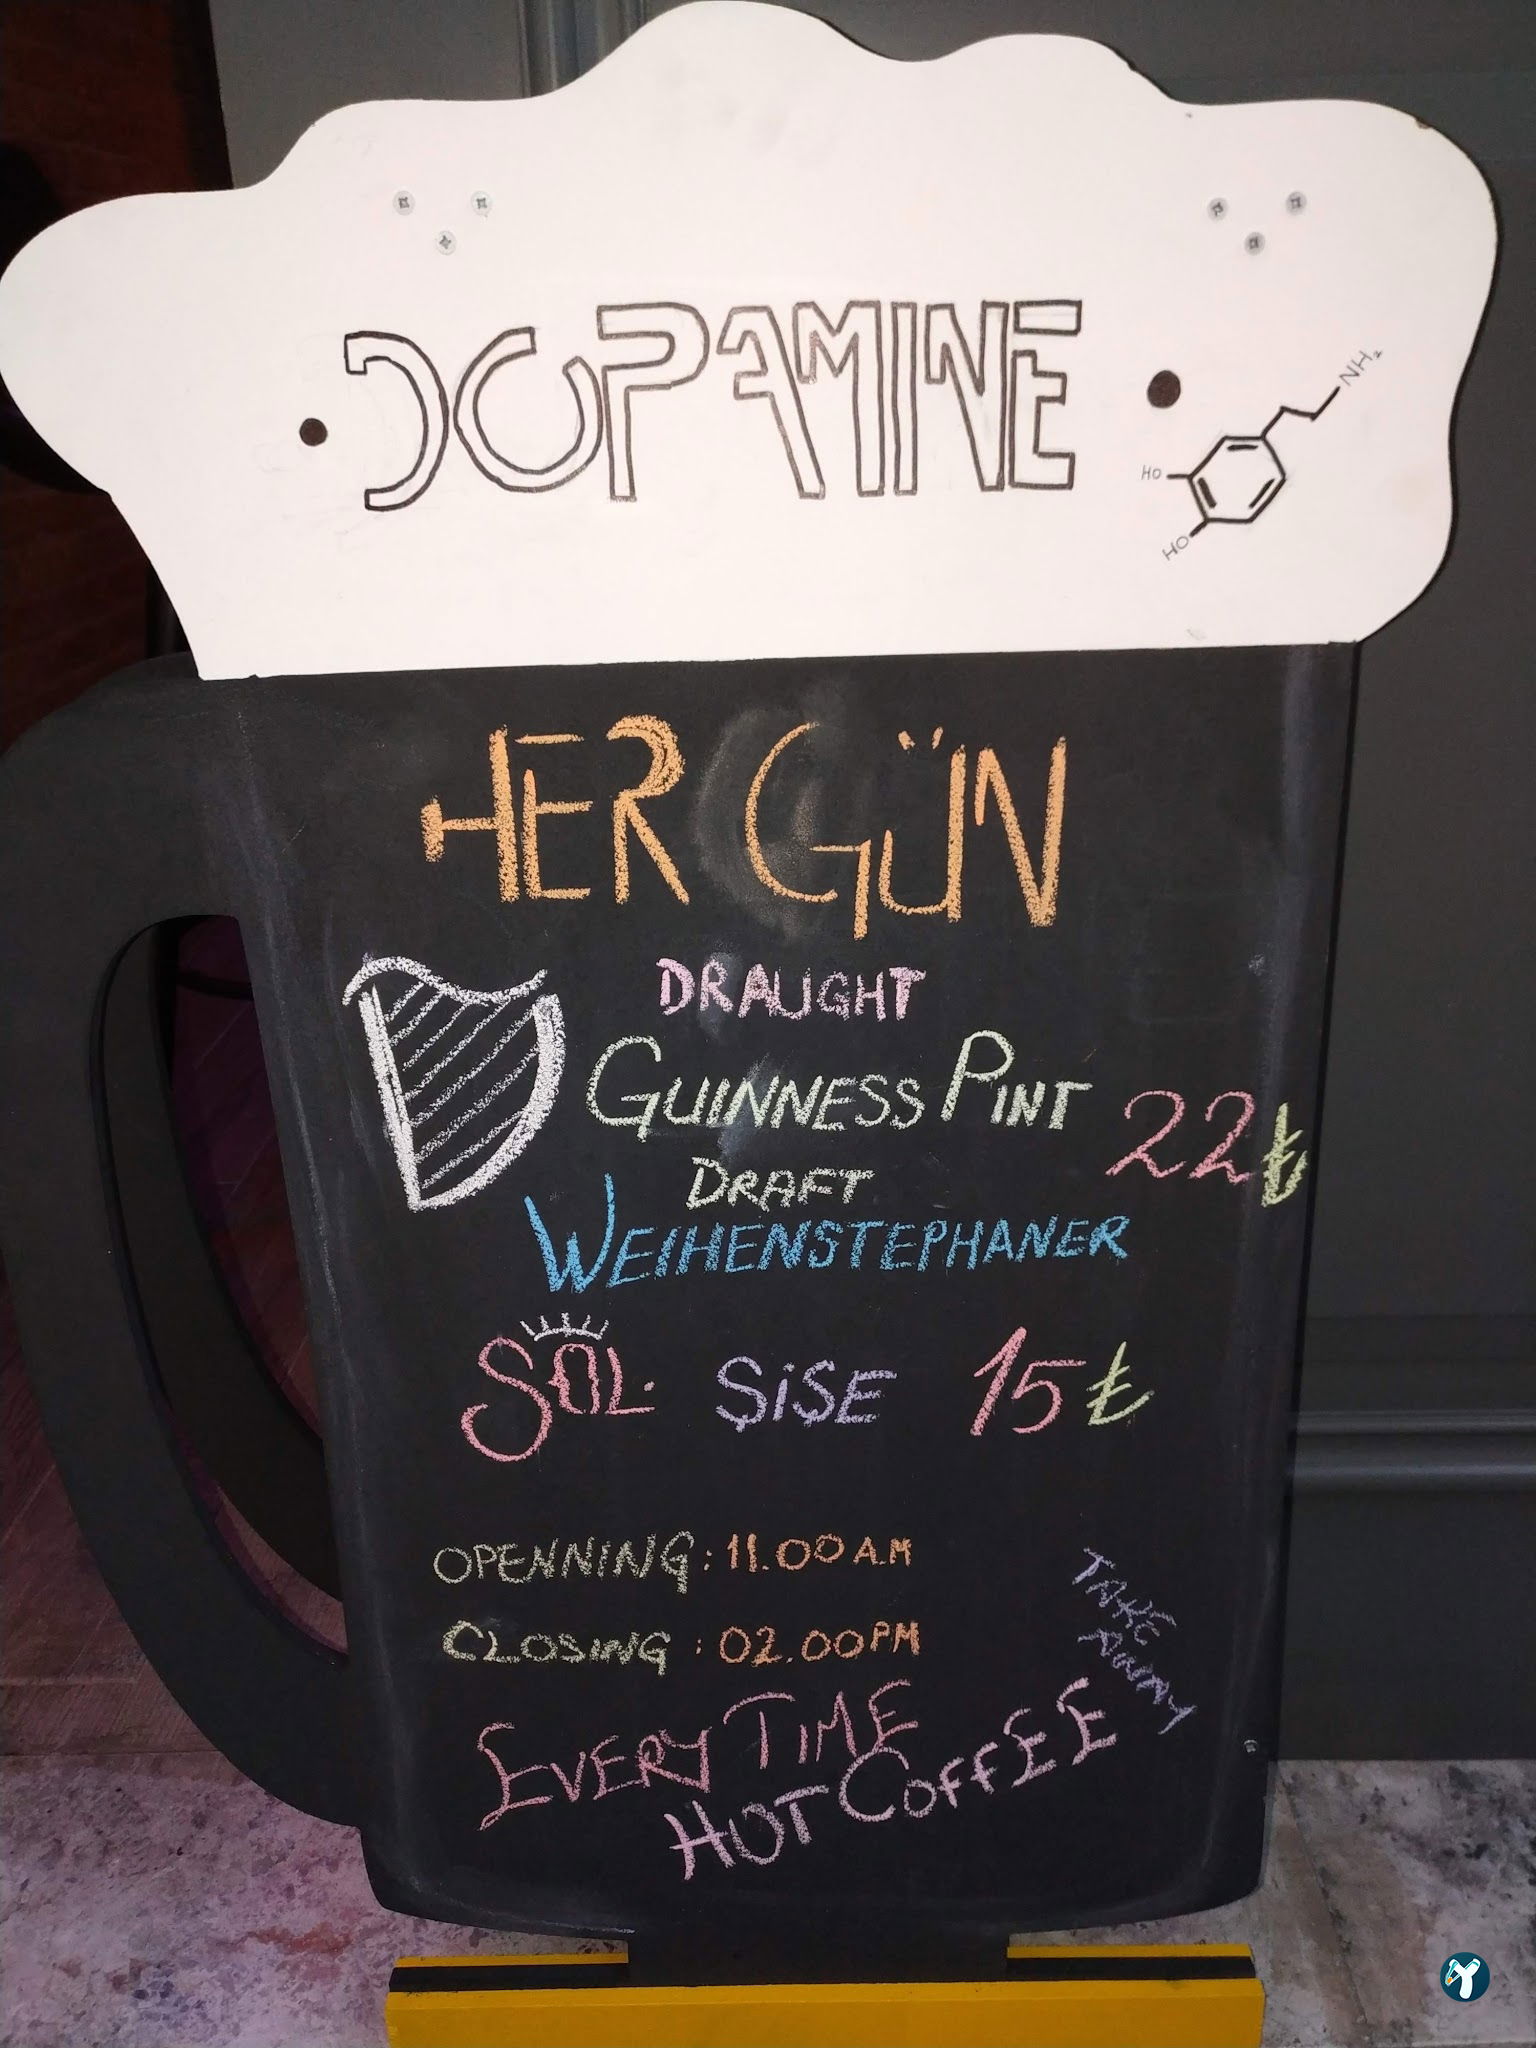 DOPAMINE
NH₂
HO
HO
HER GÜN
DRAUGHT
GUINNESS PINT 22₺
DRAFT
WEIHENSTEPHANER
SOL ŞİŞE 15₺
OPENNING: 11.00 A.M
CLOSING: 02.00 PM
TAKE
AWAY
EVERY TIME
HOT COFFEE